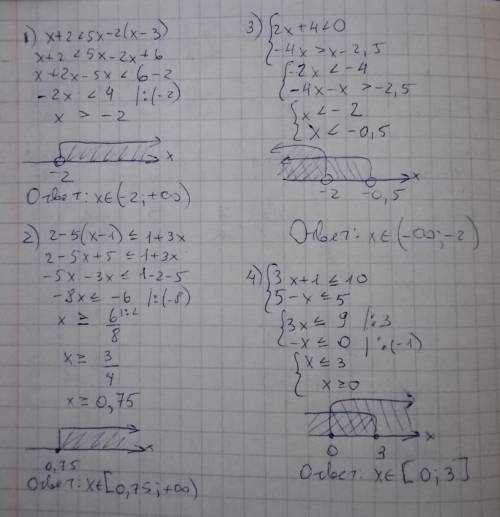 1) x+2<5x-2(x-3)
x+2<5x-2x+6
x+2x-5x<6-2
-2x<4 |:(-2)
x > -2
x
-2
Ответ: x∈(-2;+∞)
2) 2-5(x-1)≤1+3x
2-5x+5≤1+3x
-5x-3x≤1-2-5
-8x≤-6 |:(-8)
x ≥ 6/8 |:2
x≥ 3/4
x≥0,75
x
0,75
Ответ: x∈[0,75;+∞)
3) {2x+4<0
{-4x>x-2,5
{-2x<-4
{-4x-x>-2,5
{x<-2
{x<-0,5
x
-2 -0,5
Ответ: x∈(-∞;-2)
4) {3x+1≤10
{5-x≤5
{3x≤9 |:3
{-x≤0 |:(-1)
{x≤3
{x≥0
x
0 3
Ответ: x∈[0;3]